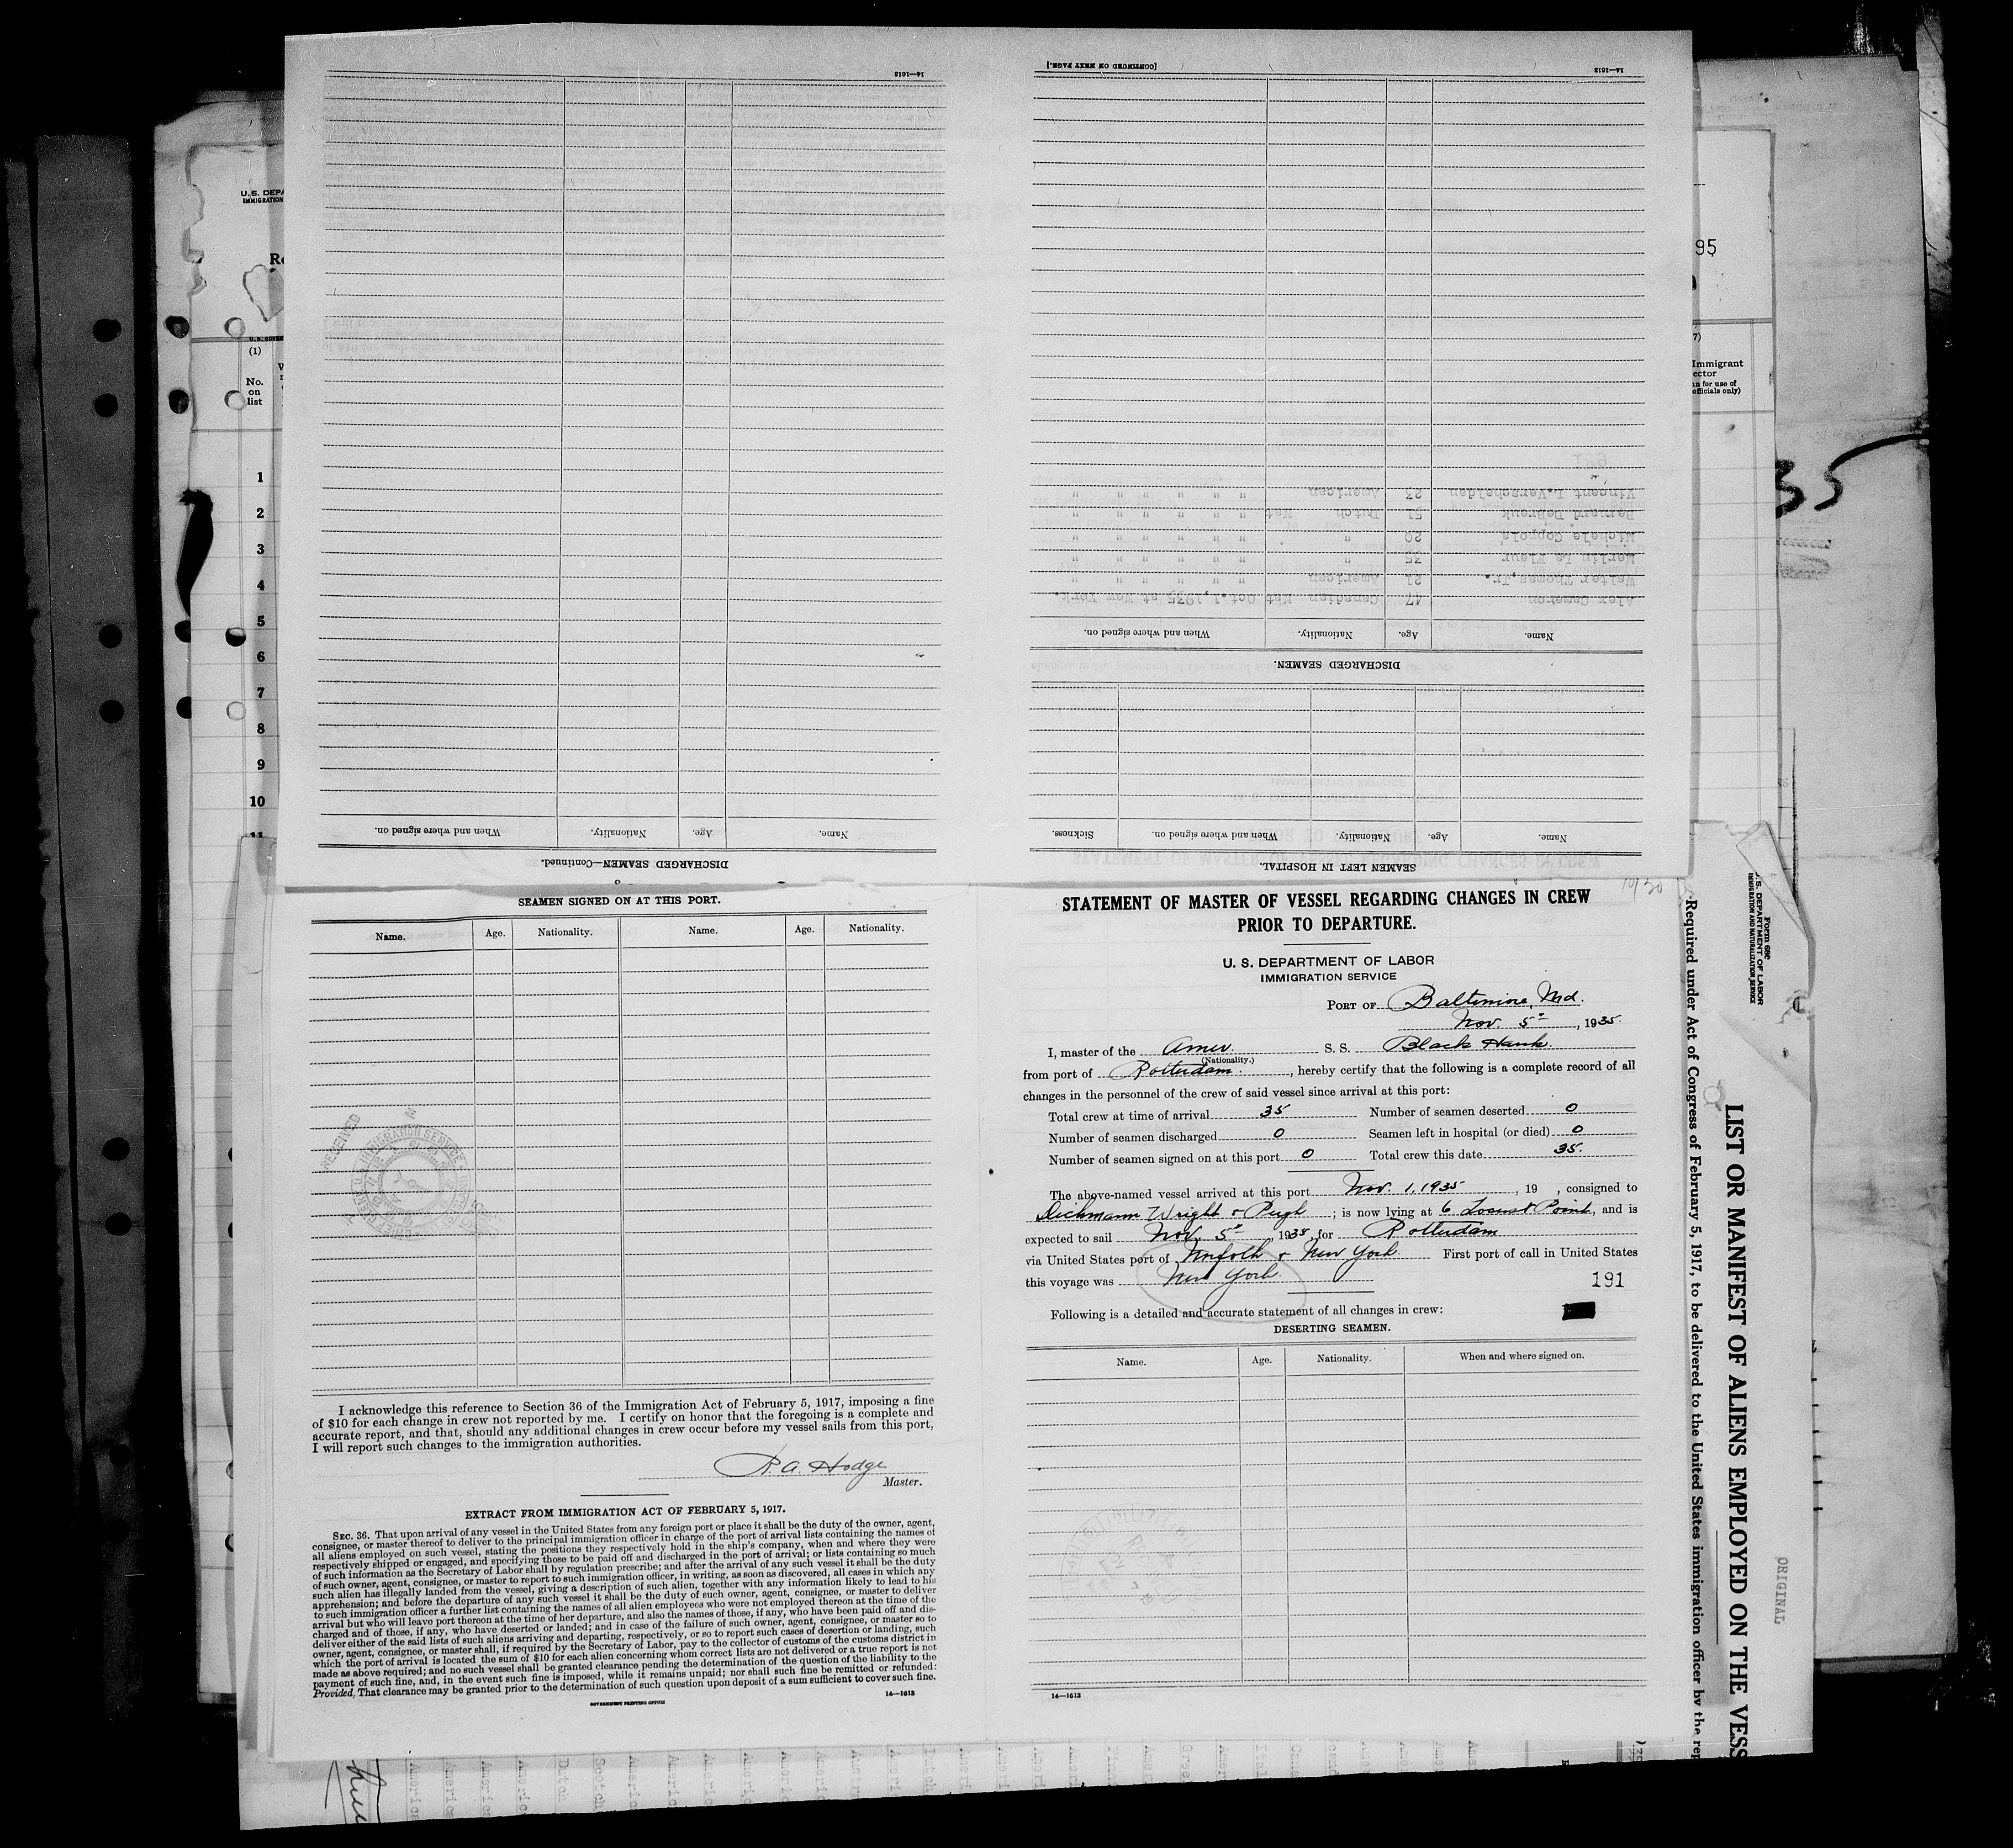 STATEMENT OF MASTER OF VESSEL REGARDING CHANGES IN CREW
PRIOR TO DEPARTURE.
U. S. DEPARTMENT OF LABOR
IMMIGRATION SERVICE
PORT OF Baltimore, Md.
Nov. 5th, 1935.
I, master of the Amer. S. S. Black Hawk
(Nationality.)
from port of Rotterdam, hereby certify that the following is a complete record of all
changes in the personnel of the crew of said vessel since arrival at this port:
Total crew at time of arrival 35 Number of seamen deserted 0
Number of seamen discharged 0 Seamen left in hospital (or died) 0
Number of seamen signed on at this port 0 Total crew this date 35.
The above-named vessel arrived at this port Nov. 1, 1935, 19 , consigned to
Dichmann Wright & Pugh; is now lying at 6 Locust Point, and is
expected to sail Nov. 5th, 1935, for Rotterdam
via United States port of Norfolk & New York First port of call in United States
this voyage was New York. 191
Following is a detailed and accurate statement of all changes in crew:
DESERTING SEAMEN.
Name. Age. Nationality. When and where signed on.
14—1613
SEAMEN SIGNED ON AT THIS PORT.
Name. Age. Nationality. Name. Age. Nationality.
I acknowledge this reference to Section 36 of the Immigration Act of February 5, 1917, imposing a fine
of $10 for each change in crew not reported by me. I certify on honor that the foregoing is a complete and
accurate report, and that, should any additional changes in crew occur before my vessel sails from this port,
I will report such changes to the immigration authorities.
R. A. Hodge
Master.
EXTRACT FROM IMMIGRATION ACT OF FEBRUARY 5, 1917.
SEC. 36. That upon arrival of any vessel in the United States from any foreign port or place it shall be the duty of the owner, agent,
consignee, or master thereof to deliver to the principal immigration officer in charge of the port of arrival lists containing the names of
all aliens employed on such vessel, stating the positions they respectively hold in the ship's company, when and where they were
respectively shipped or engaged, and specifying those to be paid off and discharged in the port of arrival; or lists containing so much
of such information as the Secretary of Labor shall by regulation prescribe; and after the arrival of any such vessel it shall be the duty
of such owner, agent, consignee, or master to report to such immigration officer, in writing, as soon as discovered, all cases in which any
such alien has illegally landed from the vessel, giving a description of such alien, together with any information likely to lead to his
apprehension; and before the departure of any such vessel it shall be the duty of such owner, agent, consignee, or master to deliver
to such immigration officer a further list containing the names of all alien employees who were not employed thereon at the time of the
arrival but who will leave port thereon at the time of her departure, and also the names of those, if any, who have been paid off and dis-
charged and of those, if any, who have deserted or landed; and in case of the failure of such owner, agent, consignee, or master so to
deliver either of the said lists of such aliens arriving and departing, respectively, or so to report such cases of desertion or landing, such
owner, agent, consignee, or master shall, if required by the Secretary of Labor, pay to the collector of customs of the customs district in
which the port of arrival is located the sum of $10 for each alien concerning whom correct lists are not delivered or a true report is not
made as above required; and no such vessel shall be granted clearance pending the determination of the question of the liability to the
payment of such fine, and, in the event such fine is imposed, while it remains unpaid; nor shall such fine be remitted or refunded:
Provided, That clearance may be granted prior to the determination of such question upon deposit of a sum sufficient to cover such fine.
GOVERNMENT PRINTING OFFICE 14—1613
SEAMEN LEFT IN HOSPITAL.
Name. Age. Nationality. When and where signed on. Sickness.
DISCHARGED SEAMEN.
Name. Age. Nationality. When and where signed on.
Alex Cameron 47 Canadian Nat Oct.1,1935 at New York.
Walter Thomas,Jr. 21 American " " " " " "
Merlin La Fleur 35 " " " " " " "
Michele Coppola 20 " " " " " " "
Bernard DeBrouk 51 Dutch Nat " " " " " "
Vincent L.Verschelden 23 American " " " " " "
[CONTINUED ON NEXT PAGE.]
14—1613
DISCHARGED SEAMEN—Continued.
Name. Age. Nationality. When and where signed on.
14—1613
U. S. DEPA
IMMIGRATION
(1)
No.
on
list
1
2
3
4
5
6
7
8
9
10
11
95
Immigrant
ector
officials only)
35
Form 680
U. S. DEPARTMENT OF LABOR
IMMIGRATION AND NATURALIZATION SERVICE
LIST OR MANIFEST OF ALIENS EMPLOYED ON THE VESS
Required under Act of Congress of February 5, 1917, to be delivered to the United States immigration officer by the rep
ORIGINAL
RECEIVED
IMMIGRATION SERVICE